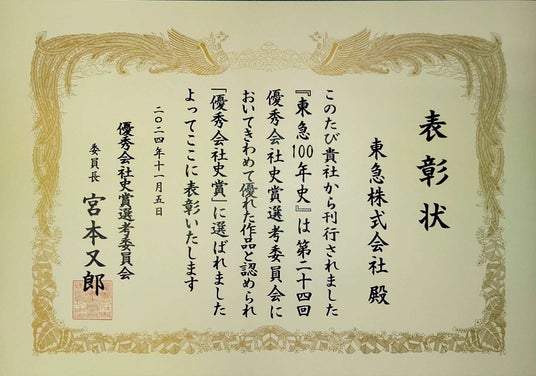 表彰状
東急株式会社 殿
このたび貴社から刊行されました
『東急100年史』は第二十四回
優秀会社史賞選考委員会に
おいてきわめて優れた作品と認められ
「優秀会社史賞」に選ばれました
よってここに表彰いたします
二〇二四年十一月五日
優秀会社史賞選考委員会
委員長 宮本又郎